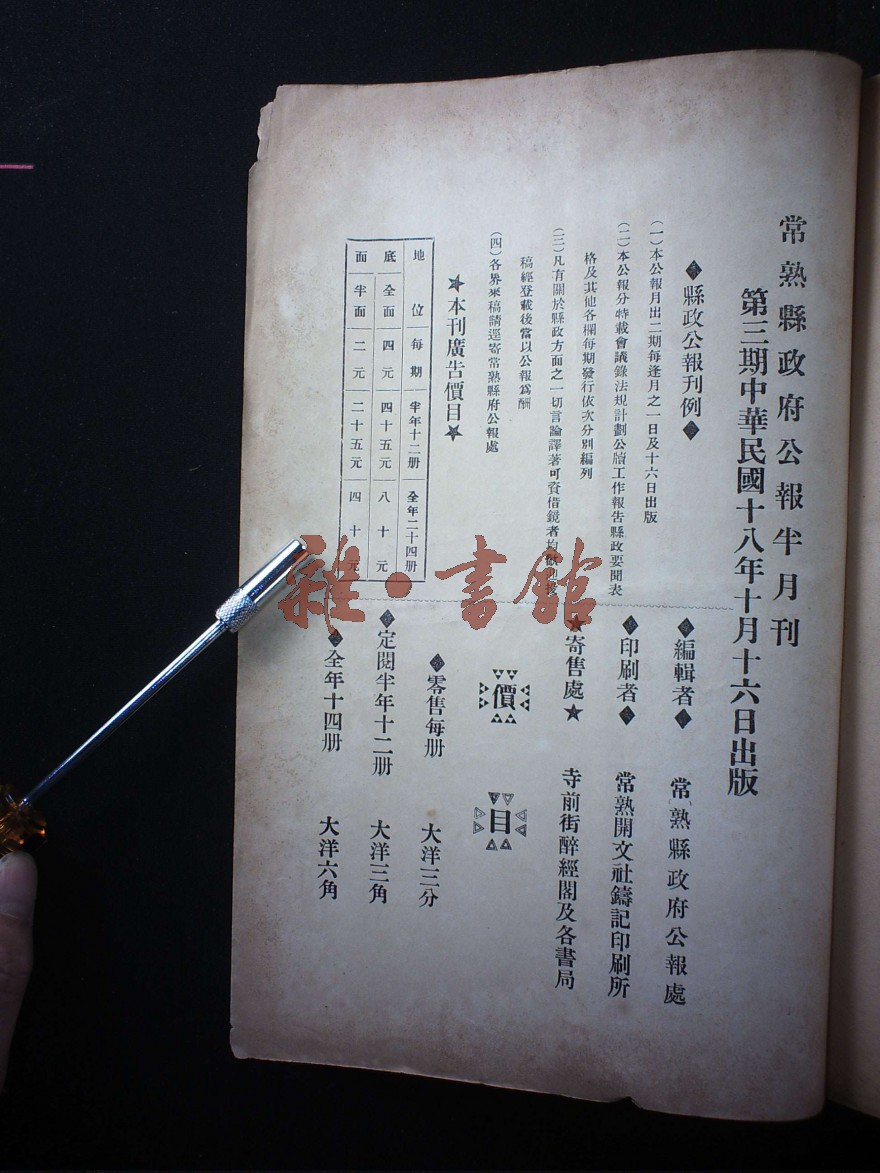 常熟縣政府公報半月刊
第三期中華民國十八年十月十六日出版
縣政公報刊例
(一)本公報月出二期每逢月之一日及十六日出版
(二)本公報分特載會議錄法規計劃公牘工作報告縣政要聞表
格及其他各欄每期發行依次分別編列
(三)凡有關於縣政方面之一切言論譯著可資借鏡者均歡迎投
稿經登載後當以公報爲酬
(四)各界來稿請逕寄常熟縣府公報處
★本刊廣告價目★
地位 每期 半年十二册 全年二十四册
底 全面 四元 四十五元 八十元
面 半面 二元 二十五元 四十元
編輯者 常熟縣政府公報處
印刷者 常熟開文社鑄記印刷所
★寄售處★ 寺前街醉經閣及各書局
價目
零售每册 大洋三分
定閱半年十二册 大洋三角
全年十四册 大洋六角
雜·書館